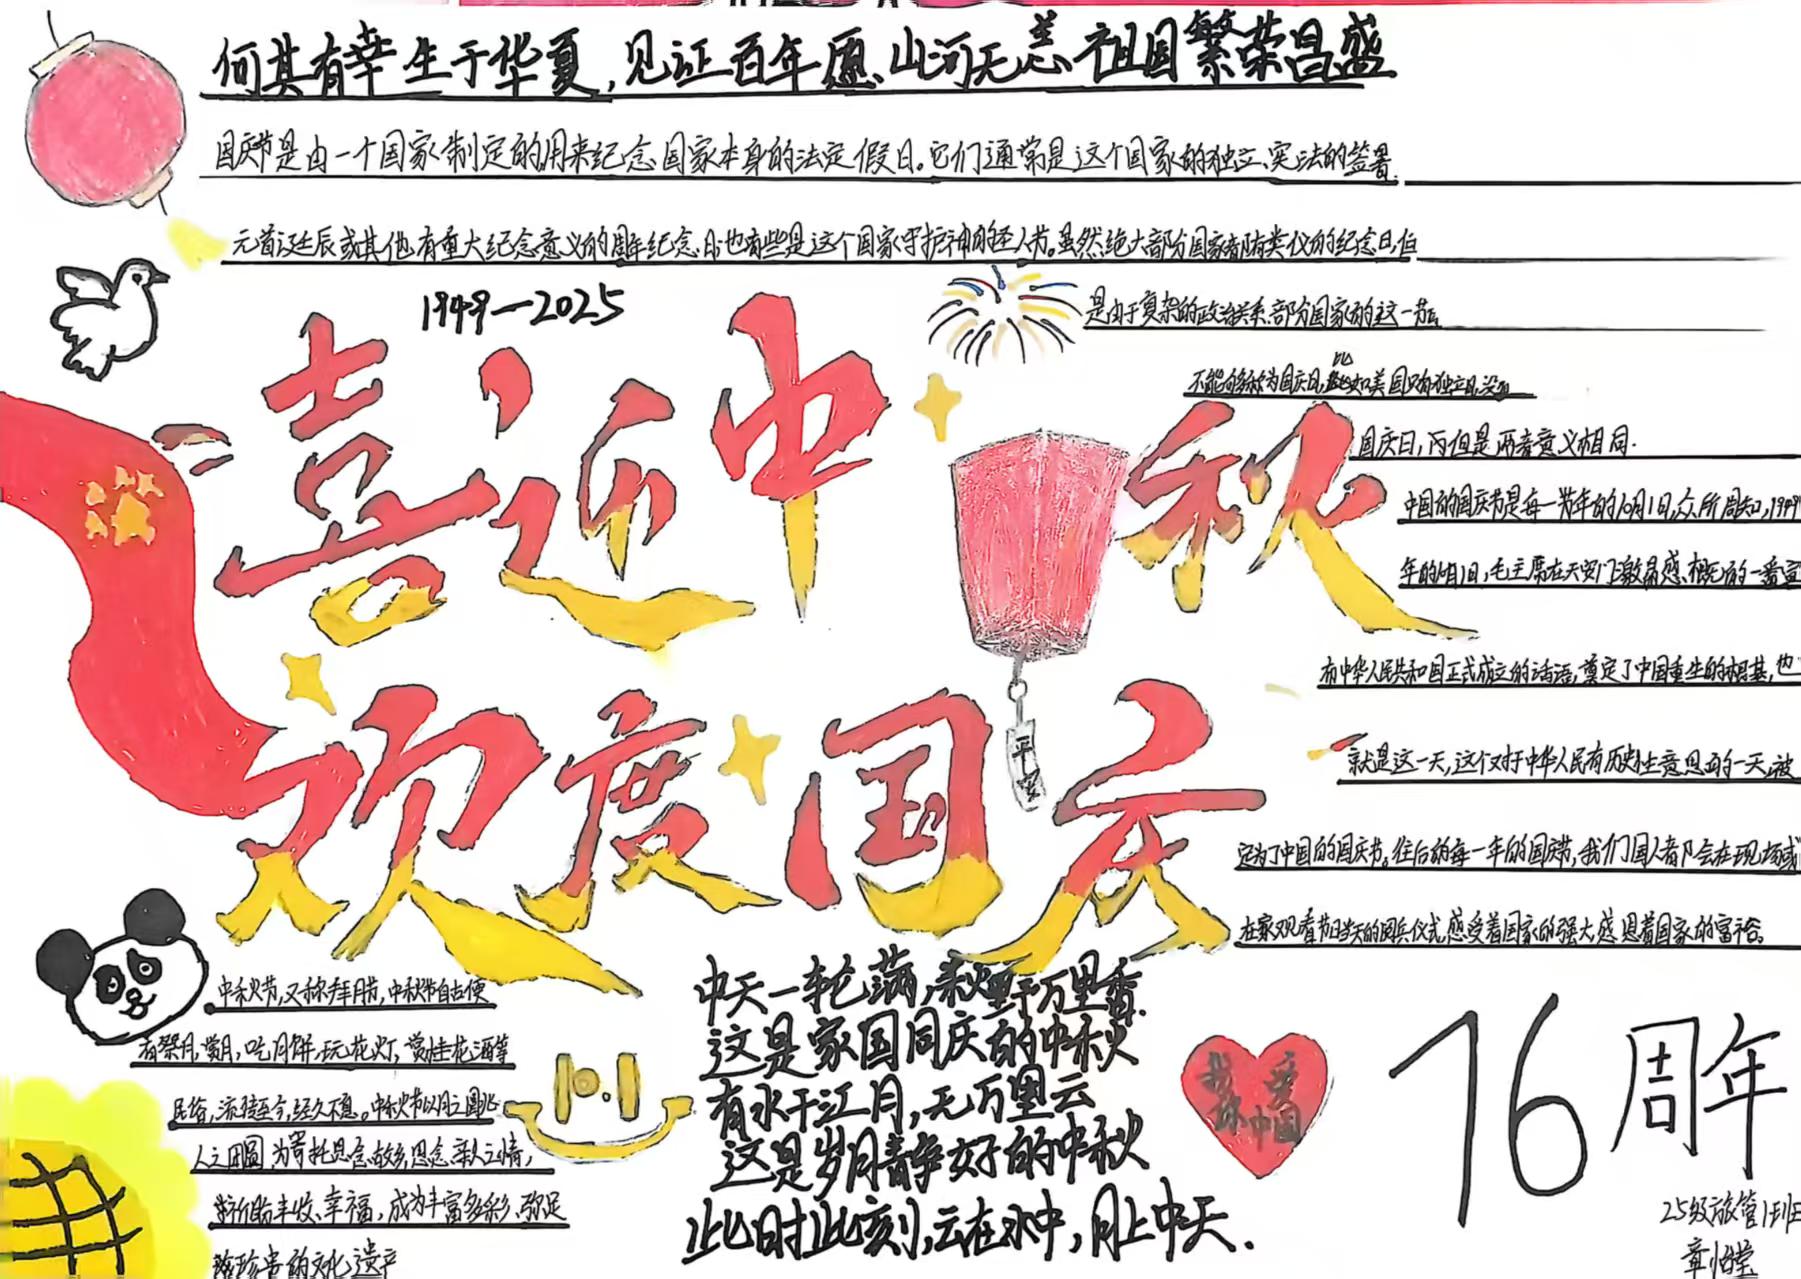 何其有幸生于华夏,见证百年愿、山河无恙祖国繁荣昌盛
国庆节是由一个国家制定的用来纪念国家本身的法定假日。它们通常是这个国家的独立、宪法的签署、
元首诞辰或其他有重大纪念意义的周年纪念日;也有些是这个国家守护神的圣人节。虽然绝大部分国家都有类似的纪念日,但
1949—2025
是由于复杂的政治关系,部分国家的这一节日
不能够称为国庆日,比如美国只有独立日,没有
国庆日,丙但是两者意义相同.
喜迎中秋
中国的国庆节是每一年的10月1日,众所周知,1949
年的10月1日,毛主席在天安门激昂感概的一番宣
有中华人民共和国正式成立的话语,奠定了中国重生的根基,也
欢度国庆
平安
就是这一天,这个对于中华人民有历史性意思的一天,被
定为了中国的国庆节。往后的每一年的国庆节,我们国人都会在现场或
在家观看节日当天的阅兵仪式感受着国家的强大感恩着国家的富裕。
中秋节,又称拜月节,中秋节自古便
有祭月,赏月,吃月饼,玩花灯,赏桂花酒等
民俗,流传至今,经久不息。中秋节以月之圆兆
人之团圆,为寄托思念故乡,思念亲人之情,
祈盼丰收、幸福,成为丰富多彩、弥足
珍贵的文化遗产
中天一轮满,秋野万里香.
这是家国同庆的中秋
有水千江月,无万里云
这是岁月静好的中秋
此时此刻,云在水中,月上中天.
我爱
你中国
76周年
25级旅管1班